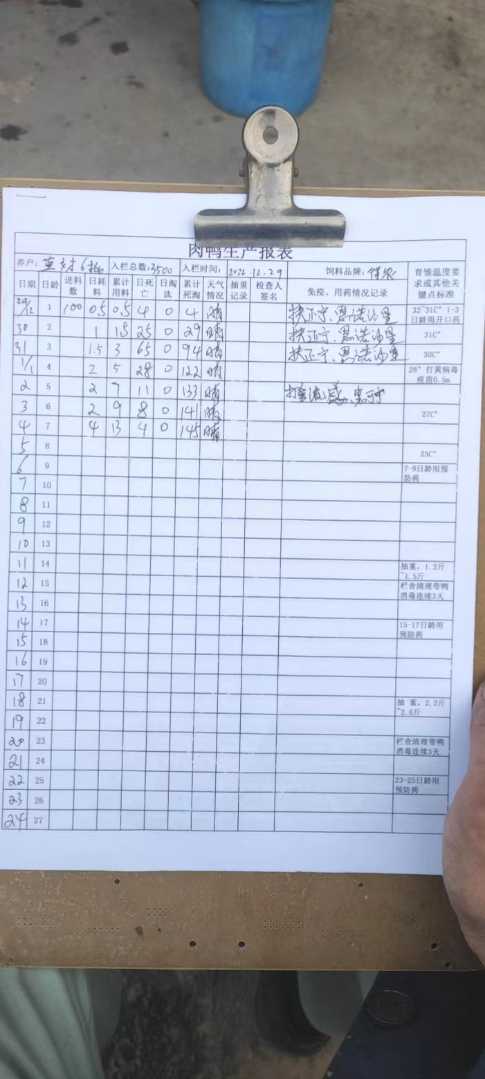 肉鸭生产报表
养户: 入栏总数:3500 入栏时间: 12.29 饲料品牌:
日期 日龄 送料数 日耗料 累计用料 日死亡 日淘汰 累计死淘 天气情况 抽重记录 检查人签名 免疫、用药情况记录 育雏温度要求或其他关键点标准
29/12 1 100 0.5 0.5 4 0 4 晴 扶正宁、恩诺沙星 32~31C° 1-3日龄用开口药
30 2 1 1.5 25 0 29 晴 扶正宁、恩诺沙星 31C°
31 3 1.5 3 65 0 94 晴 扶正宁、恩诺沙星 30C°
1/1 4 2 5 28 0 122 晴 28° 打黄病毒疫苗0.5m
2 5 2 7 11 0 133 晴
3 6 2 9 8 0 141 晴 27C°
4 7 4 13 4 0 145 晴
5 8 25C°
6 9 7-9日龄用预防药
7 10
8 11
9 12
10 13
11 14 抽重:1.3斤~1.5斤
12 15 栏舍清理弯鸭消毒连续3天
13 16
14 17 15-17日龄用预防药
15 18
16 19
17 20
18 21 抽重:2.2斤~2.6斤
19 22
20 23 栏舍清理弯鸭消毒连续3天
21 24
22 25 23-25日龄用预防药
23 26
24 27